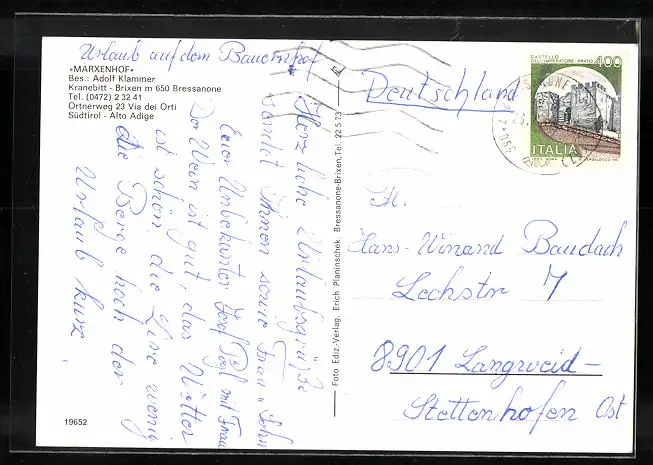 Urlaub auf dem Bauernhof
»MARXENHOF«
Bes.: Adolf Klammer
Kranebitt - Brixen m 650 Bressanone
Tel. (0472) 2 32 41
Ortnerweg 23 Via dei Orti
Südtirol - Alto Adige
Herzliche Urlaubsgrüße
sendet Ihnen sowie Frau u. Sohn
Euer Unbekannter Josef mit Frau
Der Wein ist gut, das Wetter
ist schön, die Lire wenig
die Berge hoch der
Urlaub kurz
19652
Foto Ediz.-Verlag, Erich Planinschek, Bressanone-Brixen, Tel. 22 5 73
Deutschland
CASTELLO
DELL'IMPERATORE - PRATO
400
ITALIA
Hans-Winand Baudach
Lechstr 7
8901 Langweid-
Stettenhofen Ost